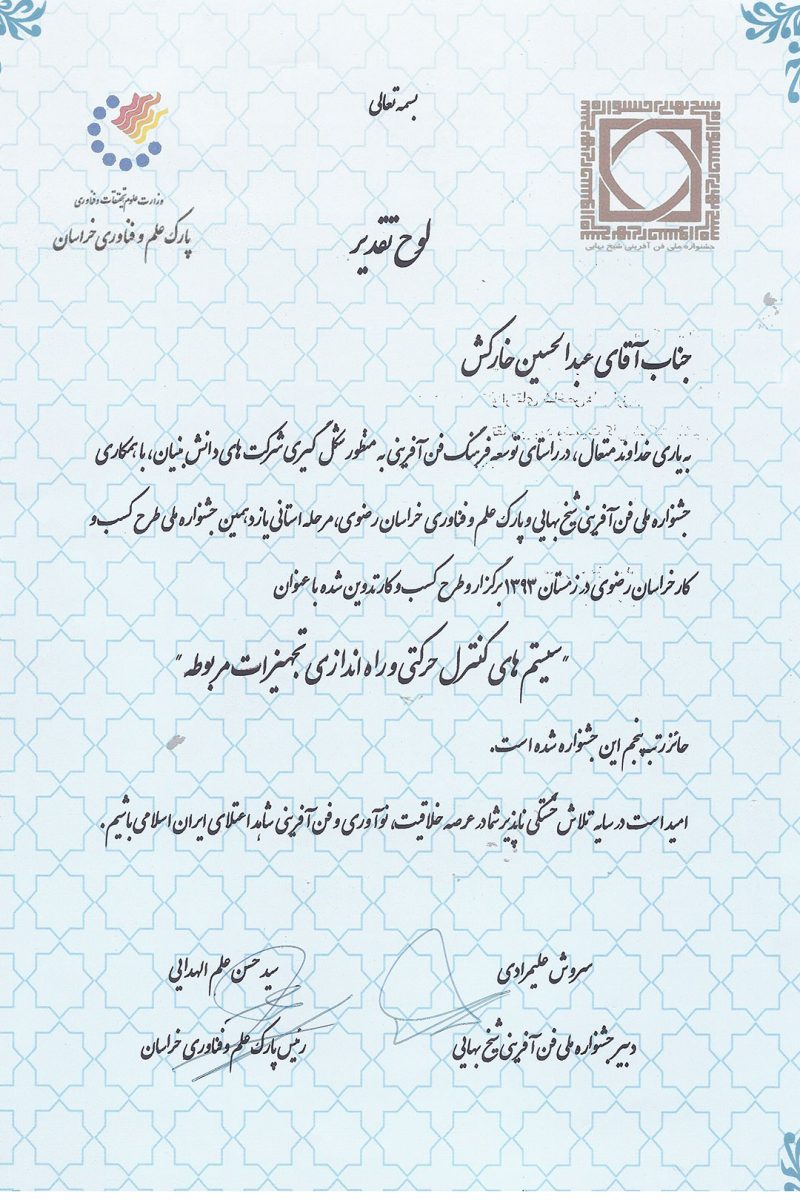 بسمه تعالی
جشنواره ملی فن آفرینی شیخ بهایی
وزارت علوم تحقیقات و فناوری
پارک علم و فناوری خراسان
لوح تقدیر
جناب آقای عبدالحسین خارکش
به یاری خداوند متعال، در راستای توسعه فرهنگ فن آفرینی به منظور شکل گیری شرکت های دانش بنیان، با همکاری
جشنواره ملی فن آفرینی شیخ بهایی و پارک علم و فناوری خراسان رضوی، مرحله استانی یازدهمین جشنواره ملی طرح کسب و
کار خراسان رضوی در زمستان ۱۳۹۳ برگزار و طرح کسب و کار تدوین شده با عنوان
"سیستم های کنترل حرکتی و راه اندازی تجهیزات مربوطه"
حائز رتبه پنجم این جشنواره شده است.
امید است در سایه تلاش خستگی ناپذیر شما در عرصه خلاقیت، نوآوری و فن آفرینی شاهد اعتلای ایران اسلامی باشیم.
سروش علیمرادی
دبیر جشنواره ملی فن آفرینی شیخ بهایی
سید حسن علم الهدایی
رئیس پارک علم و فناوری خراسان